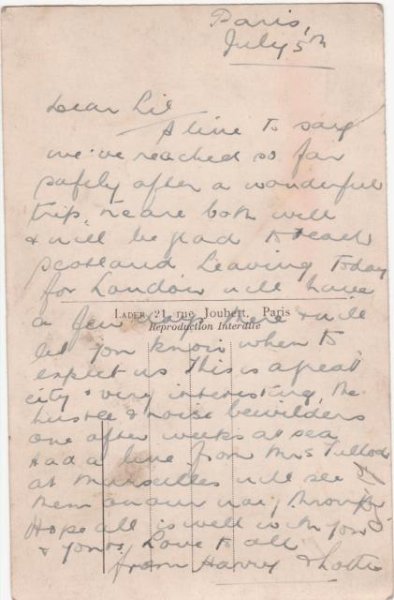 Paris,
July 5th
Dear Lil
A line to say
we've reached so far
safely after a wonderful
trip, we are both well
& will be glad to reach
Scotland Leaving today
for London will have
a few days there & will
LADER 21, rue Joubert, Paris
Reproduction Interdite
let you know when to
expect us This is a great
city & very interesting, the
hustle & noise bewilders
one after weeks at sea
Had a line from Mrs
at Marseilles will see
them on our way through
Hope all is well with you
& yours Love to all
from Harry & Lottie